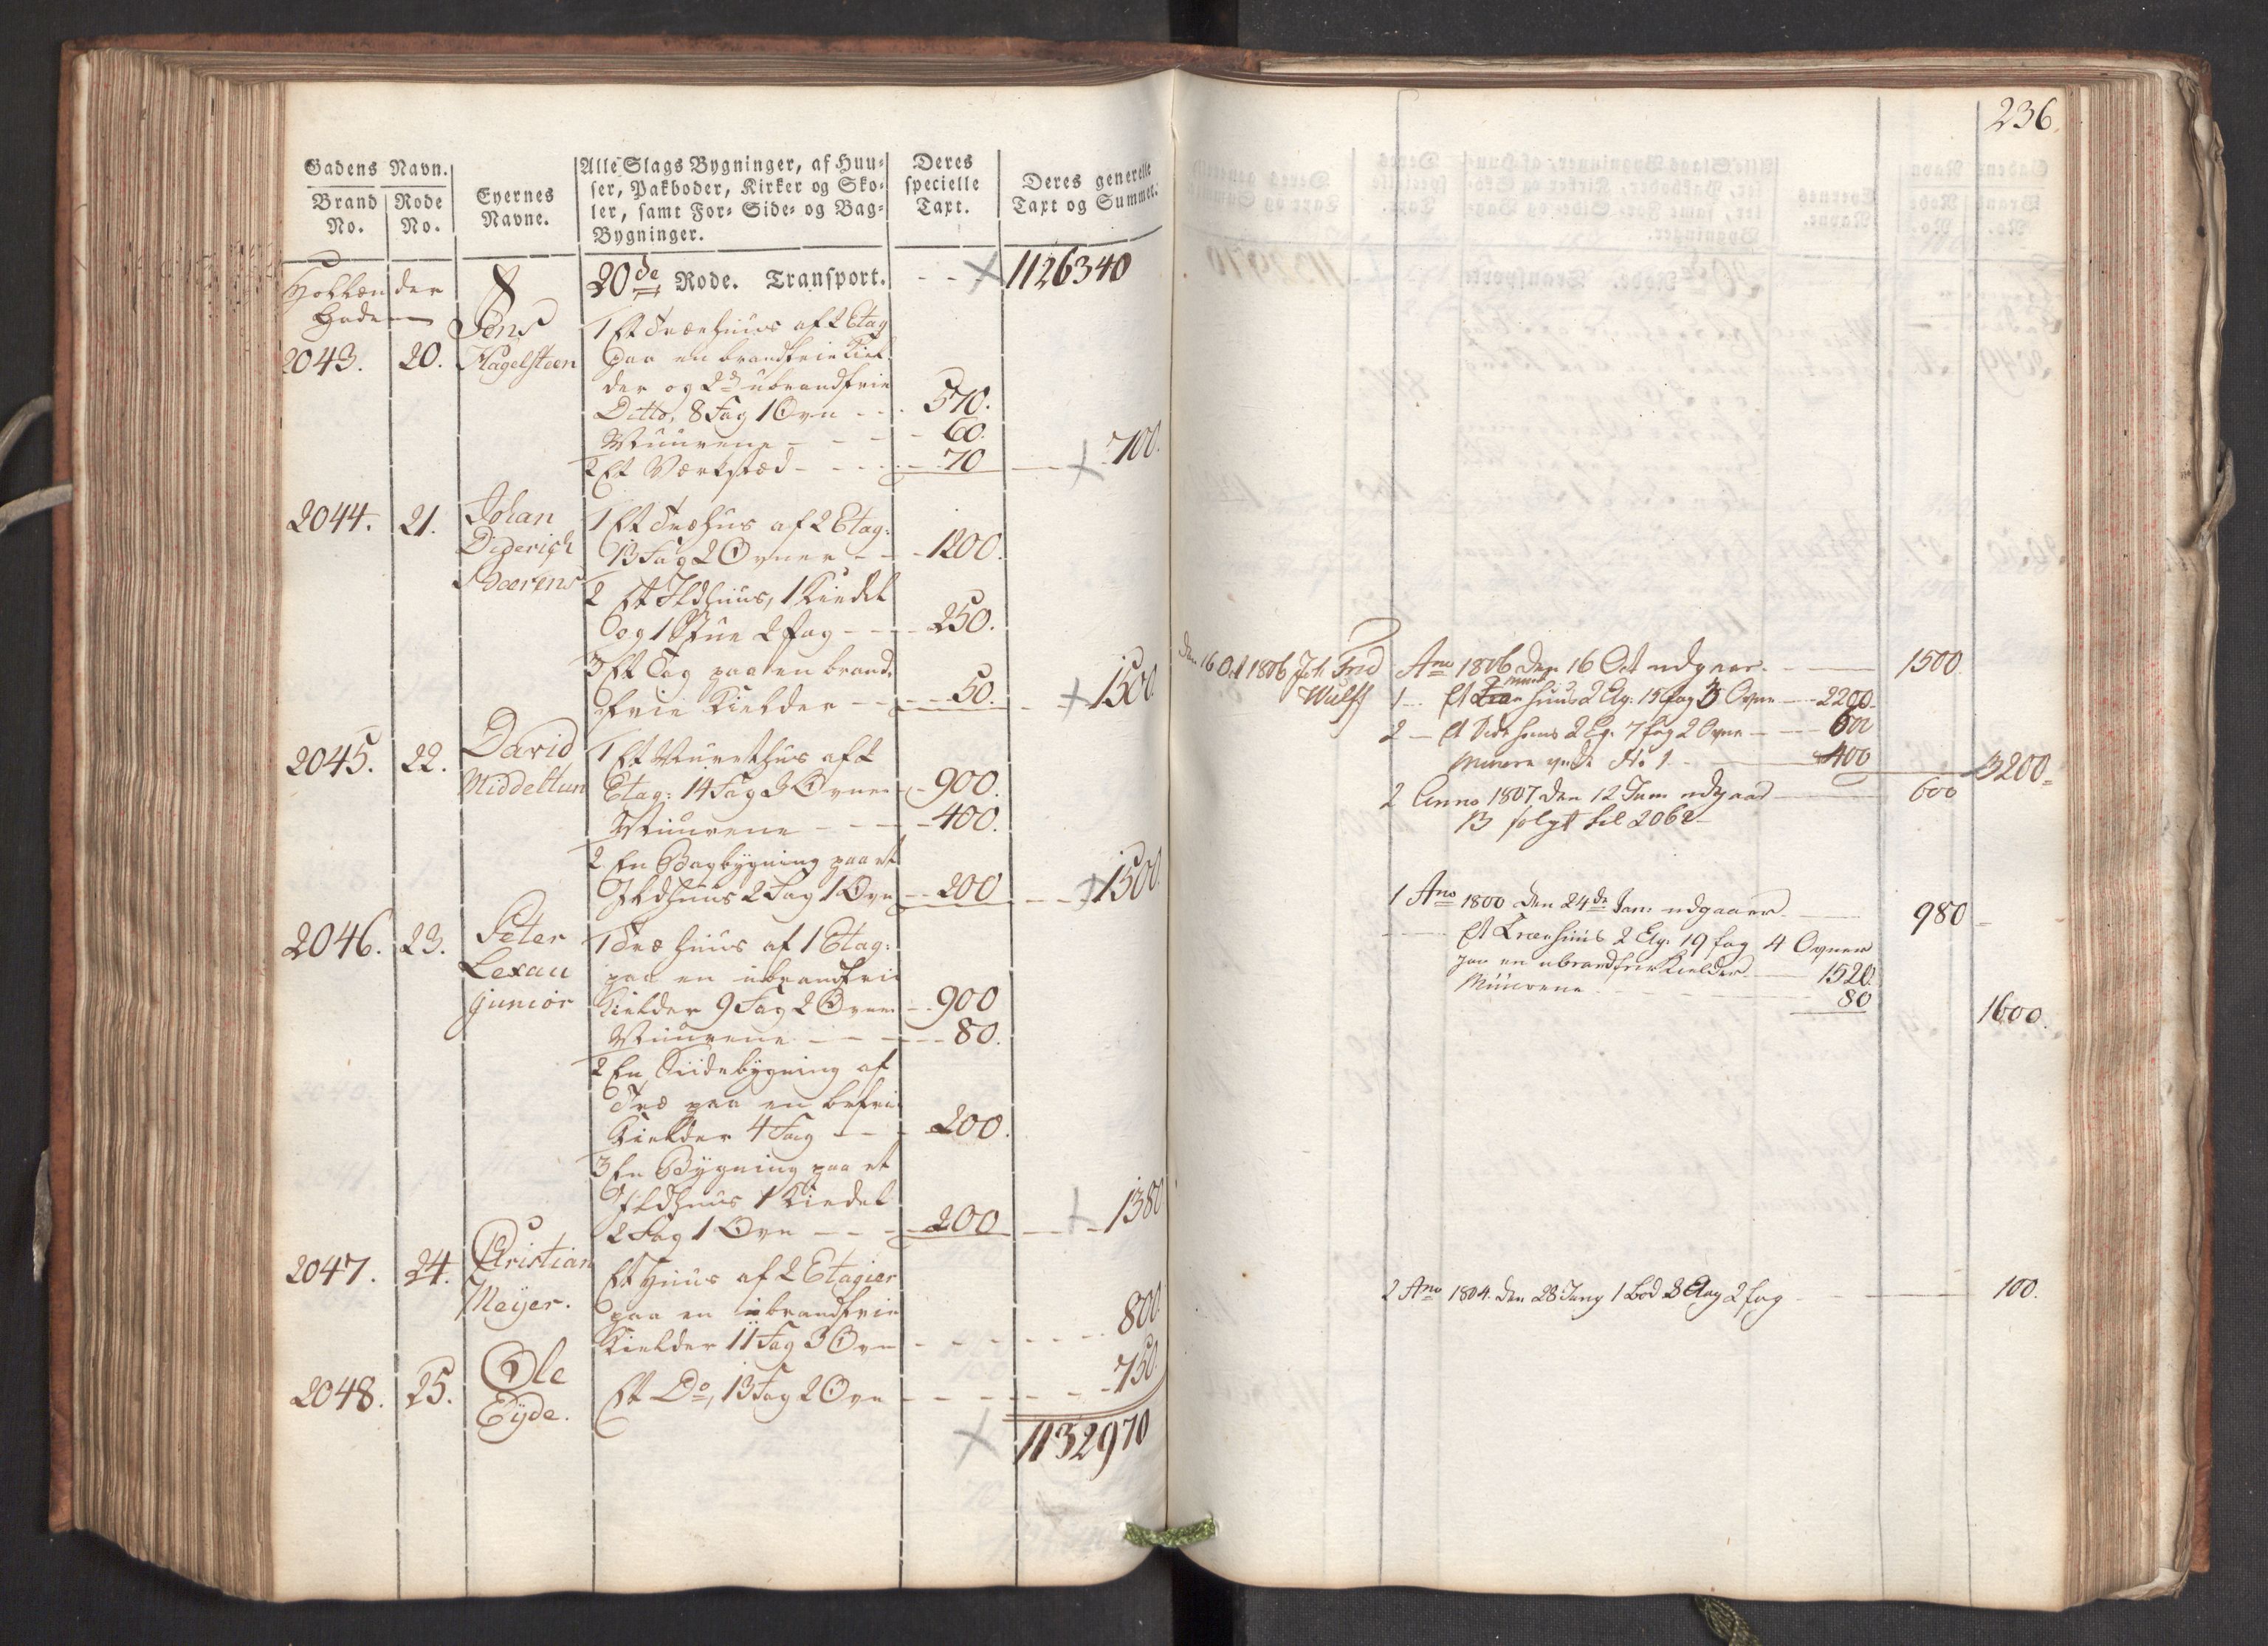 Gadens Navn.
Brand No.
Rode No.
Eyernes Navne.
Alle Slags Bygninger, af Huu-
ser, Pakboder, Kirker og Sko-
ler, samt For- Side- og Bag-
Bygninger.
Deres specielle Taxt.
Deres generelle Taxt og Summer.
Hollænder
Gaden
20de Rode. Transport. 1126340
Jens
1 Et Træehuus af 2 Etag
2043. 20. Hagelsteen paa en brandfrie Kiel
der og 2de ubrandfrie
Ditto, 8 Fag 1 Ovn 570.
Muurene 60.
2 Et Værksted 70 700.
2044. 21. Johan 1 Et Træhus af 2 Etag:
Diderich 13 Fag 2 Ovner 1200.
Beerens 2 Et Ildhuus, 1 Kiedel
og 1 Stue 2 fag 250.
3 Et Tag paa en brand
frie Kielder 50. 1500
2045. 22. David 1 Et Muurethus af 2
Middeltun Etag: 14 Fag 3 Ovner 900.
Muurene 400.
2 En Bagbygning paa et
Ildhuus 2 Fag 1 Ovn 200 1500
2046. 23. Peter 1 Træ huus af 1 Etag:
Lexau paa en ubrandfrie
junior Kielder 9 Fag 2 Ovner 900
Muurene 80.
2 En Siidebygning af
Træ paa en brfrie
Kielder 4 Fag 200.
3 En Bygning paa et
Ildhuus 1 Kiedel
2 Fag 1 Ovn 200 1380
2047. 24. Christian Et Huus af 2 Etagier
Meyer. paa en ubrandfrie
Kielder 11 Fag 3 Ovn 800.
2048. 25. Ole Eyde. Et Do, 13 Fag 2 Ovn 750.
1132970
236.
den 16 Oct 1806 Joh Frid Ano 1806 den 16 Oct udgaar 1500
Wulff 1 Et muur huus 2 Etg. 15 fag 3 Ovne 2200
2 Et Sidehuus 2 Eg. 7 fag 2 Ovne 600
Muure under No 1 400 3200
2 Anno 1807 den 12 Juni udgaar 600
13 solgt til 2062
1 Ano 1800 den 24de Jan: udgaaer 980
Et Træehuus 2 Etg: 19 fag 4 Ovner
paa en ubrandfrie Kielder 1520.
Muurene 80 1600.
2 Ano 1804. den 28 Juny 1 Bod 2 Etag 2 fag 100.